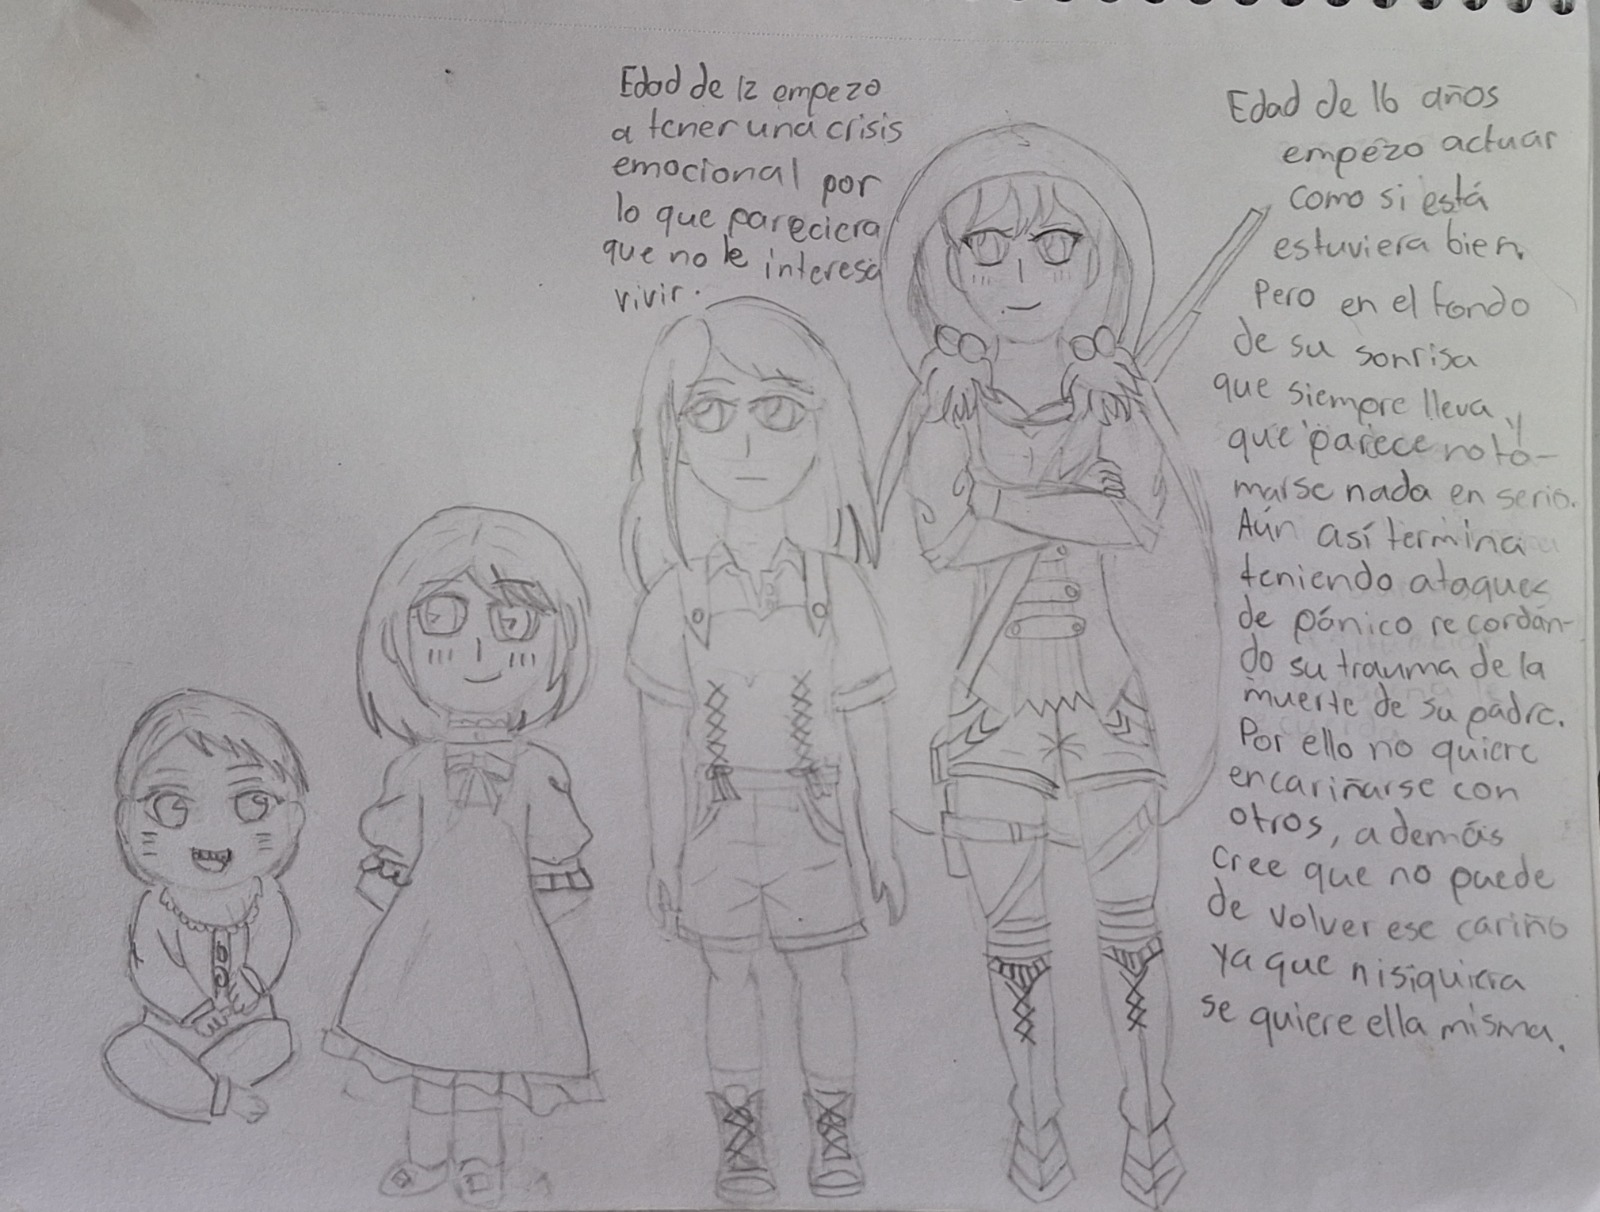 Edad de 12 empezo
a tener una crisis
emocional por
lo que pareciera
que no le interesa
vivir.
Edad de 16 años
empezo actuar
como si está
estuviera bien.
Pero en el fondo
de su sonrisa
que siempre lleva y
que parece no to-
marse nada en serio.
Aún así termina
teniendo ataques
de pánico recordan-
do su trauma de la
muerte de su padre.
Por ello no quiere
encariñarse con
otros, además
cree que no puede
de volver ese cariño
ya que nisiquiera
se quiere ella misma.